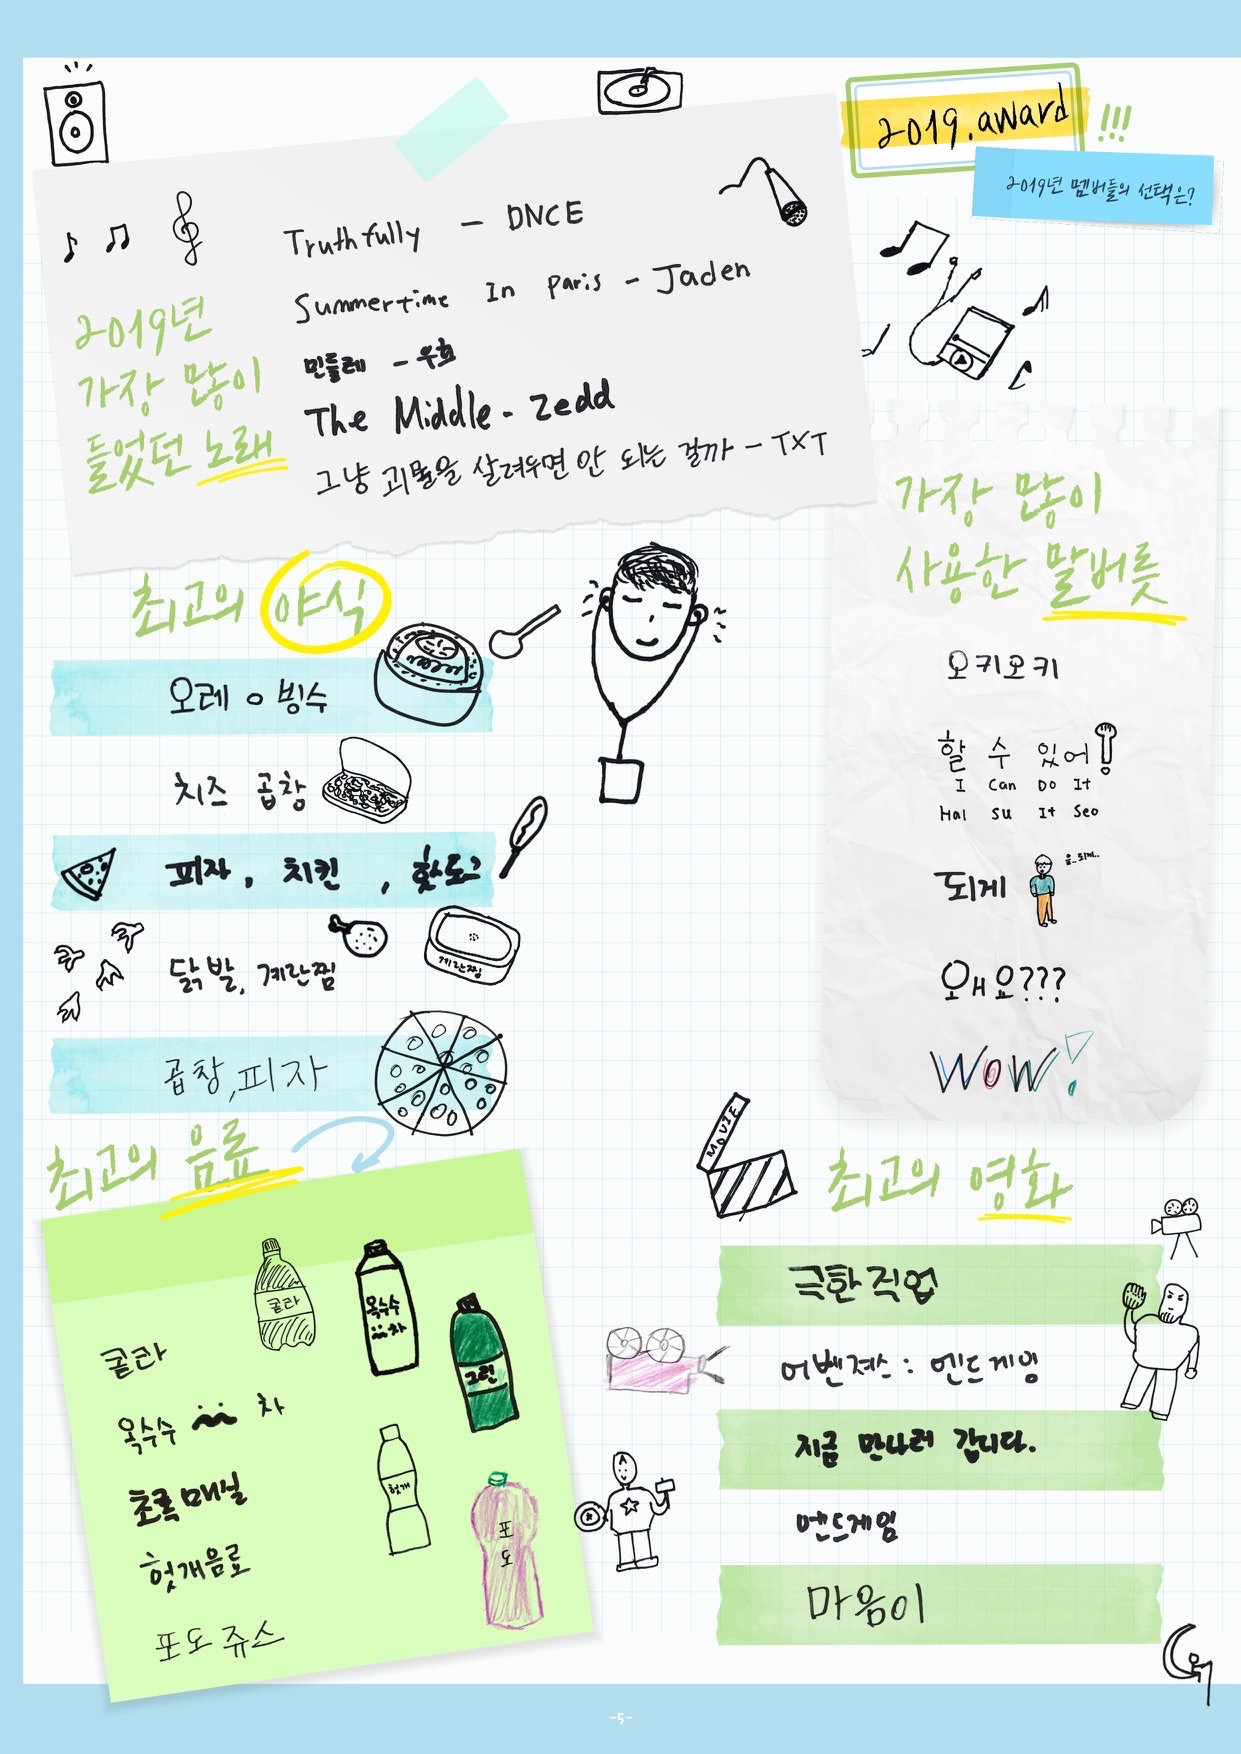 2019.award
!!!
2019년 멤버들의 선택은?
2019년
가장 많이
들었던 노래
Truthfully - DNCE
Summertime In Paris - Jaden
민들레 - 우효
The Middle - Zedd
그냥 괴물을 살려두면 안 되는 걸까 - TXT
가장 많이
사용한 말버릇
오키오키
할 수 있어!
I Can Do It
Hal Su It Seo
되게
음..되게..
왜요???
WOW!
최고의 야식
오레오 빙수
치즈 곱창
피자, 치킨, 핫도그
닭발, 계란찜
계란찜
곱창, 피자
최고의 음료
콜라
옥수수 차
초록매실
헛개음료
포도쥬스
콜라
옥수수
차
그린
헛개
포
도
MOVIE
최고의 영화
극한직업
어벤져스 : 엔드게임
지금 만나러 갑니다.
엔드게임
A
마음이
-5-